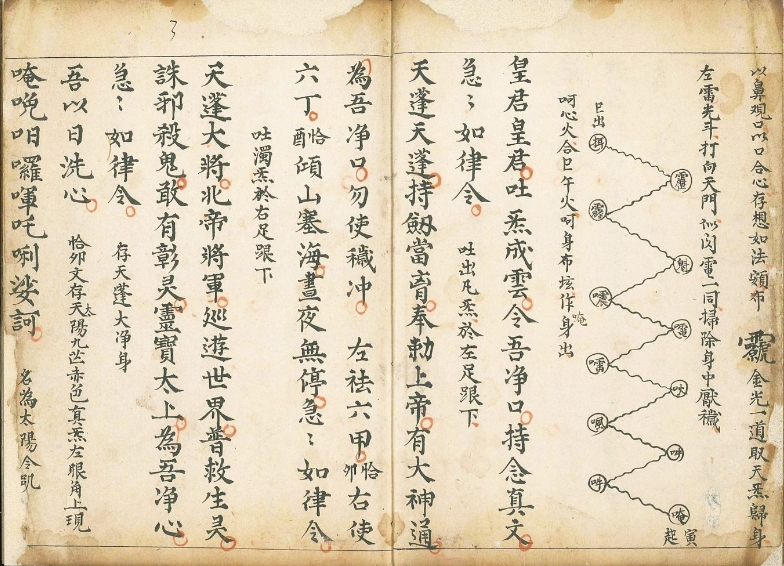 以鼻观口以口合心存想如法頞布 金光一道取天炁歸身
左雷光斗打向天門㣲闪電一同掃除身中厭穢
寅
起
唵
吽
吽
㕽
唄
雷
霳
㘕
魁
靐
靇
挕
巳出
呵心火合巳午火呵身布炫作唵身出
皇君皇君吐炁成雲令吾净口持念真文
急〻如律令 吐出凡炁於左足跟下
天蓬天蓬持劔當育奉勑上帝有大神通
為吾净口勿使穢冲 左祛六甲恰卯右使
六丁恰酉傾山塞海晝夜無停急〻如律令
吐濁炁於右足跟下
天蓬大將北帝將軍巡遊世界普救生灵
誅邪殺鬼敢有彰灵靈寶太上為吾净心
急〻如律令 存天蓬大净身
吾以日洗心 恰卯文存天太陽九芒赤色真炁左眼角上現
唵𠸄㕵囉㖷吒唎娑訶 名為太陽令訉
3